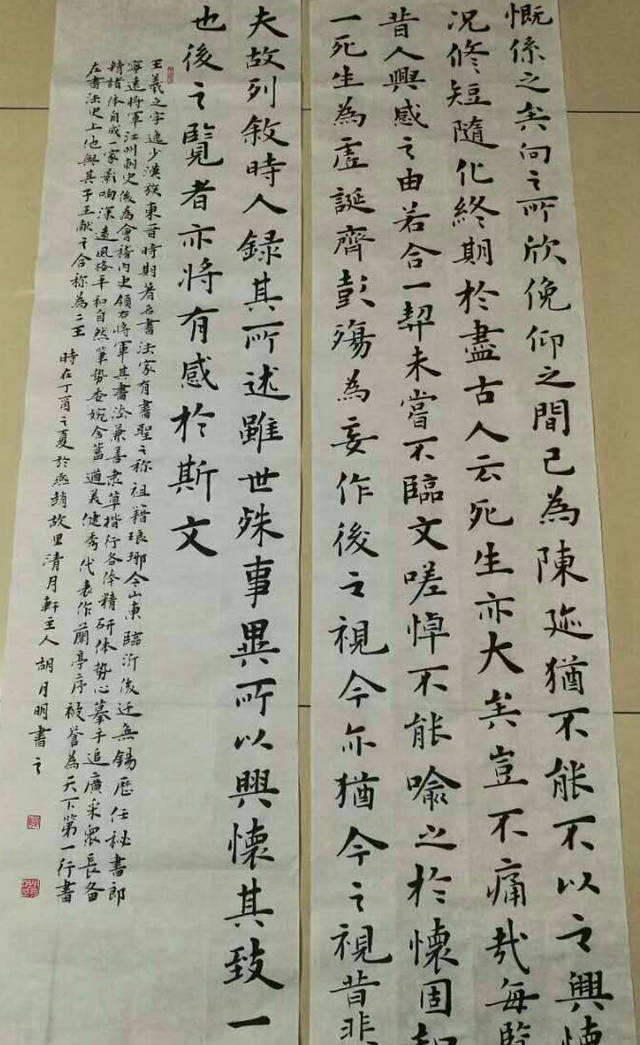 慨係之矣向之所欣俛仰之間已為陳迹猶不能不以之興懷
况修短隨化終期於盡古人云死生亦大矣豈不痛哉每覧
昔人興感之由若合一契未嘗不臨文嗟悼不能喻之於懷固知
一死生為虛誕齊彭殤為妄作後之視今亦猶今之視昔悲
夫故列敘時人録其所述雖世殊事異所以興懷其致一
也後之覽者亦將有感於斯文
王羲之字逸少漢族東晉時期著名書法家有書聖之称祖籍琅琊今山東臨沂後迁無錫歷任秘書郎
寧遠将軍江州刺史後為會稽内史領右将軍其書法兼善隶草楷行各体精研体势心摹手追廣采衆長备
精諸体自成一家影响深遠風格平和自然筆势委婉含蓄遒美健秀代表作蘭亭序被誉為天下第一行書
在書法史上他與其子王献之合称為二王 時在丁酉之夏於燕趙故里清月軒主人胡月明書之